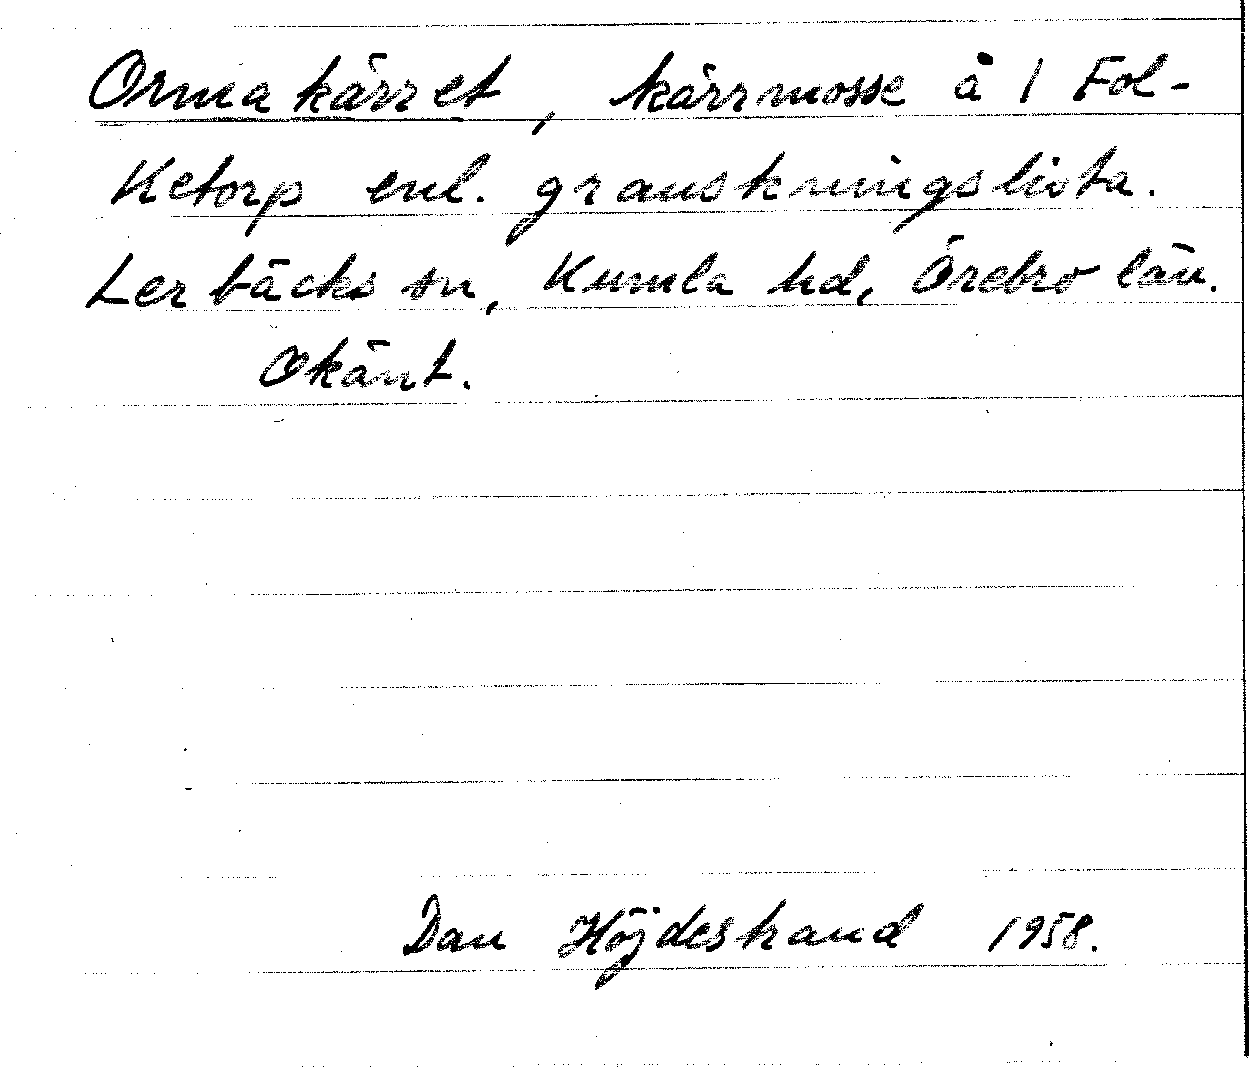 Ormakärret, kärrmosse å 1 Fol-
ketorp enl. granskningslista.
Lerbäcks sn, Kumla hd, Örebro län.
Okänt.
Dan Höjdestrand 1958.